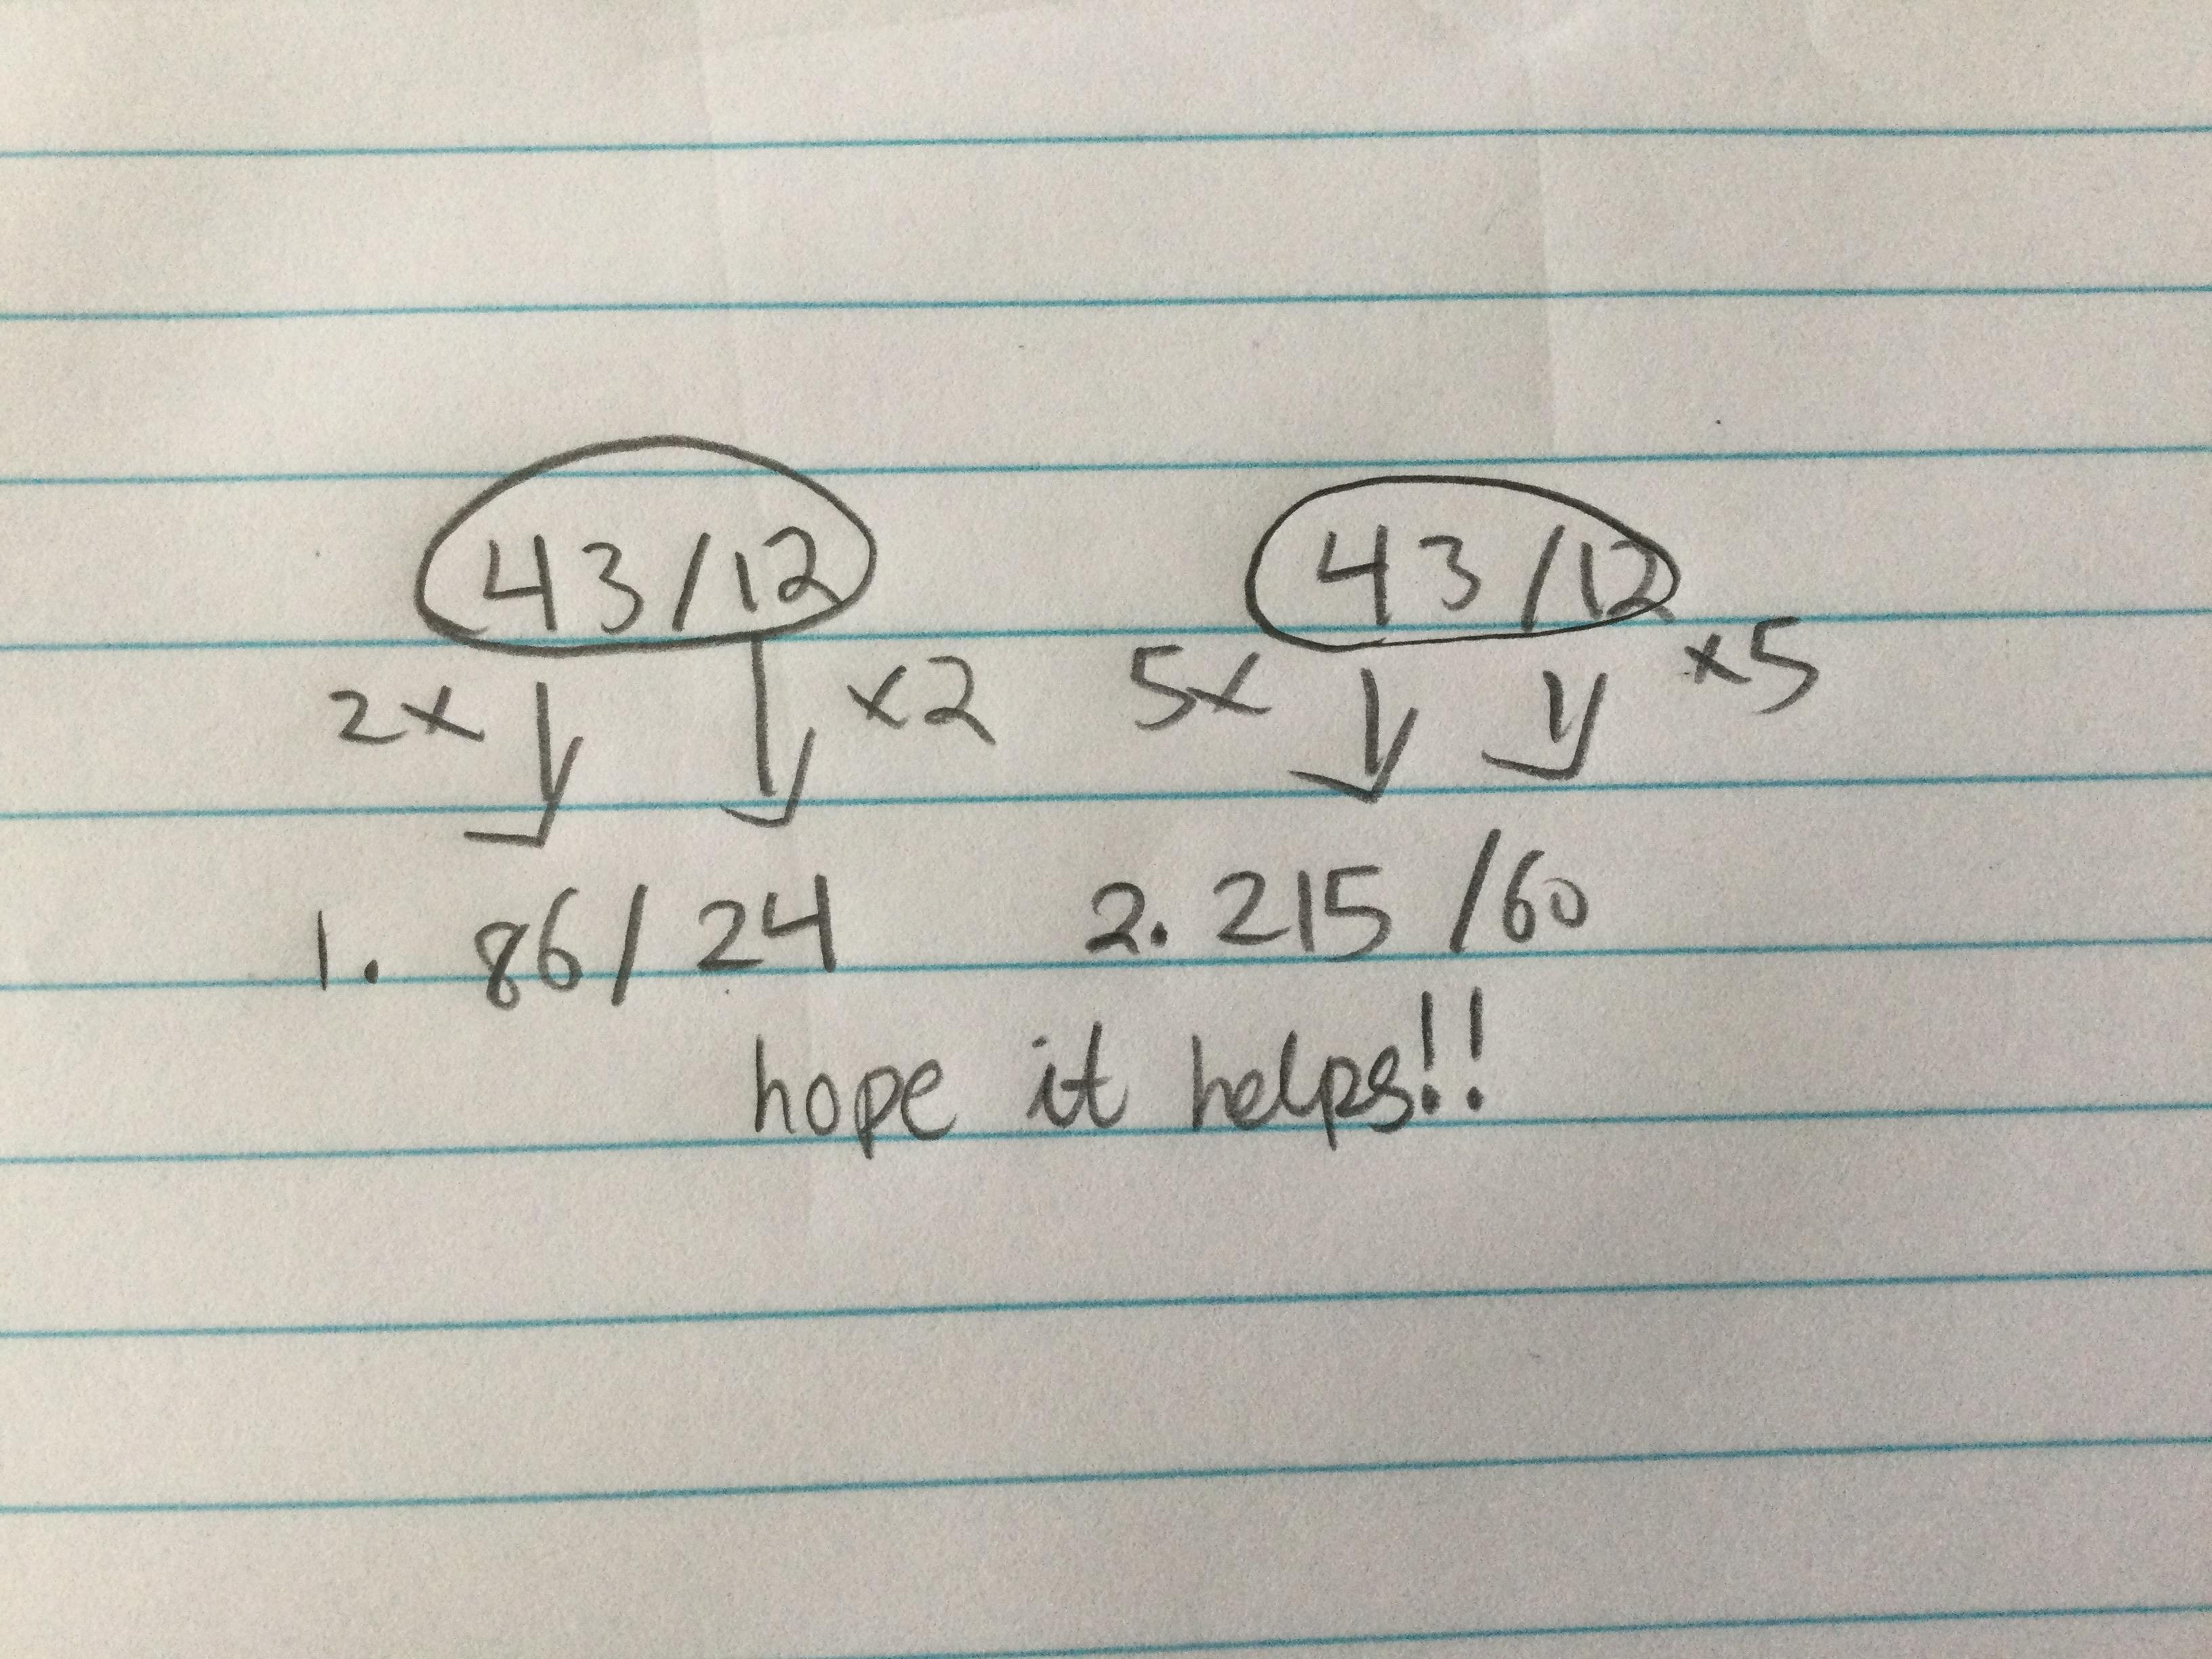 43/12 43/12
2x x2 5x x5
1. 86/24 2. 215/60
hope it helps!!